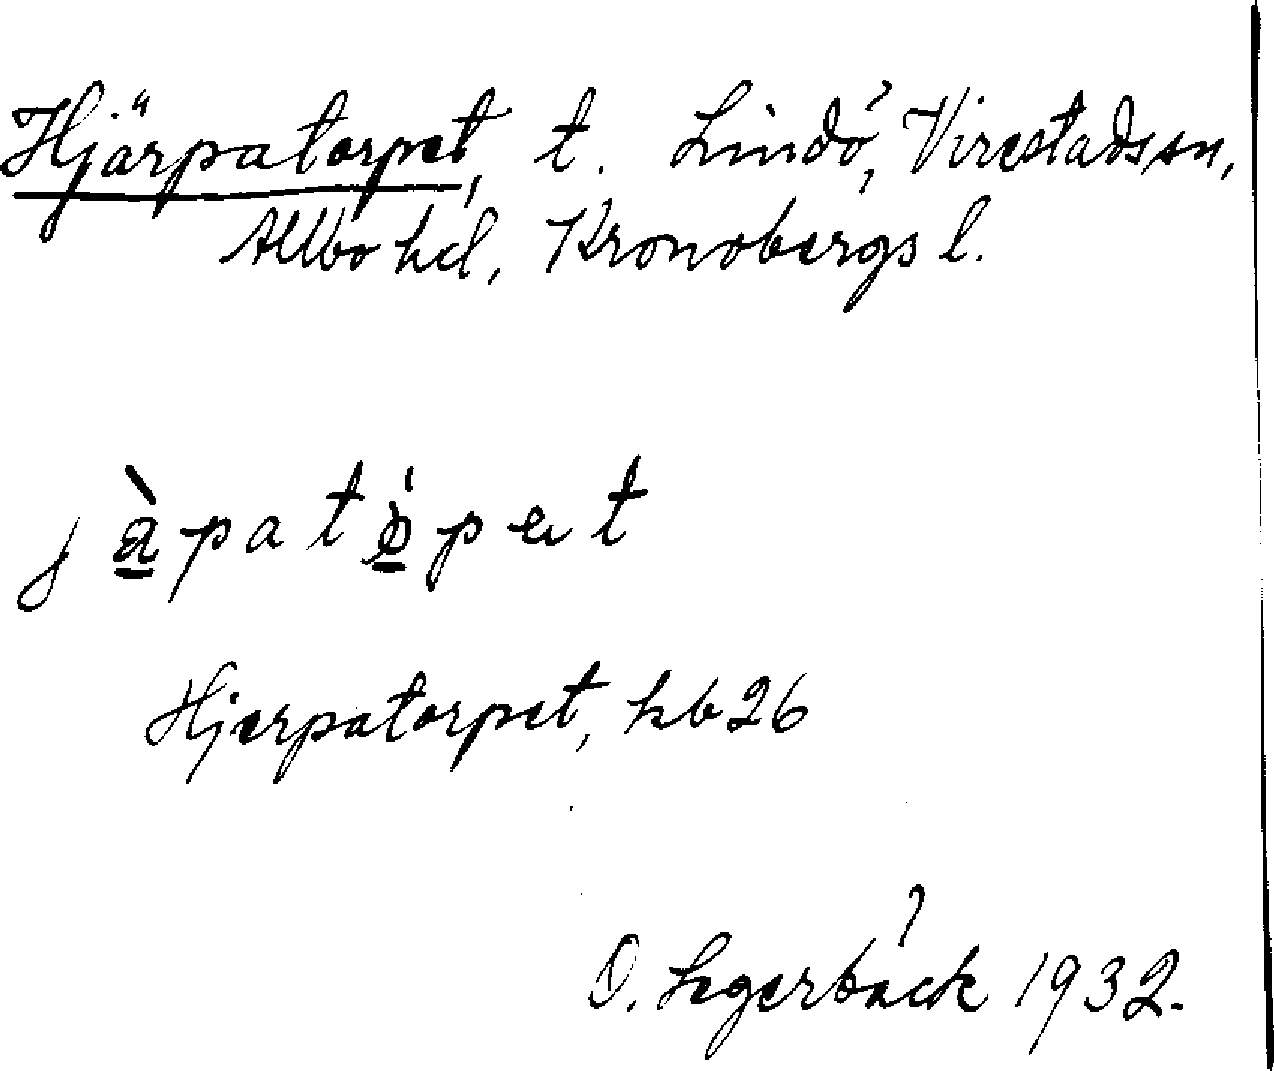 Hjärpatorpet, t. Lindö, Virestads sn,
Allbo hd, Kronobergs l.
jàpatópet
Hjerpatorpet, hb 26
O. Segerbäck 1932.